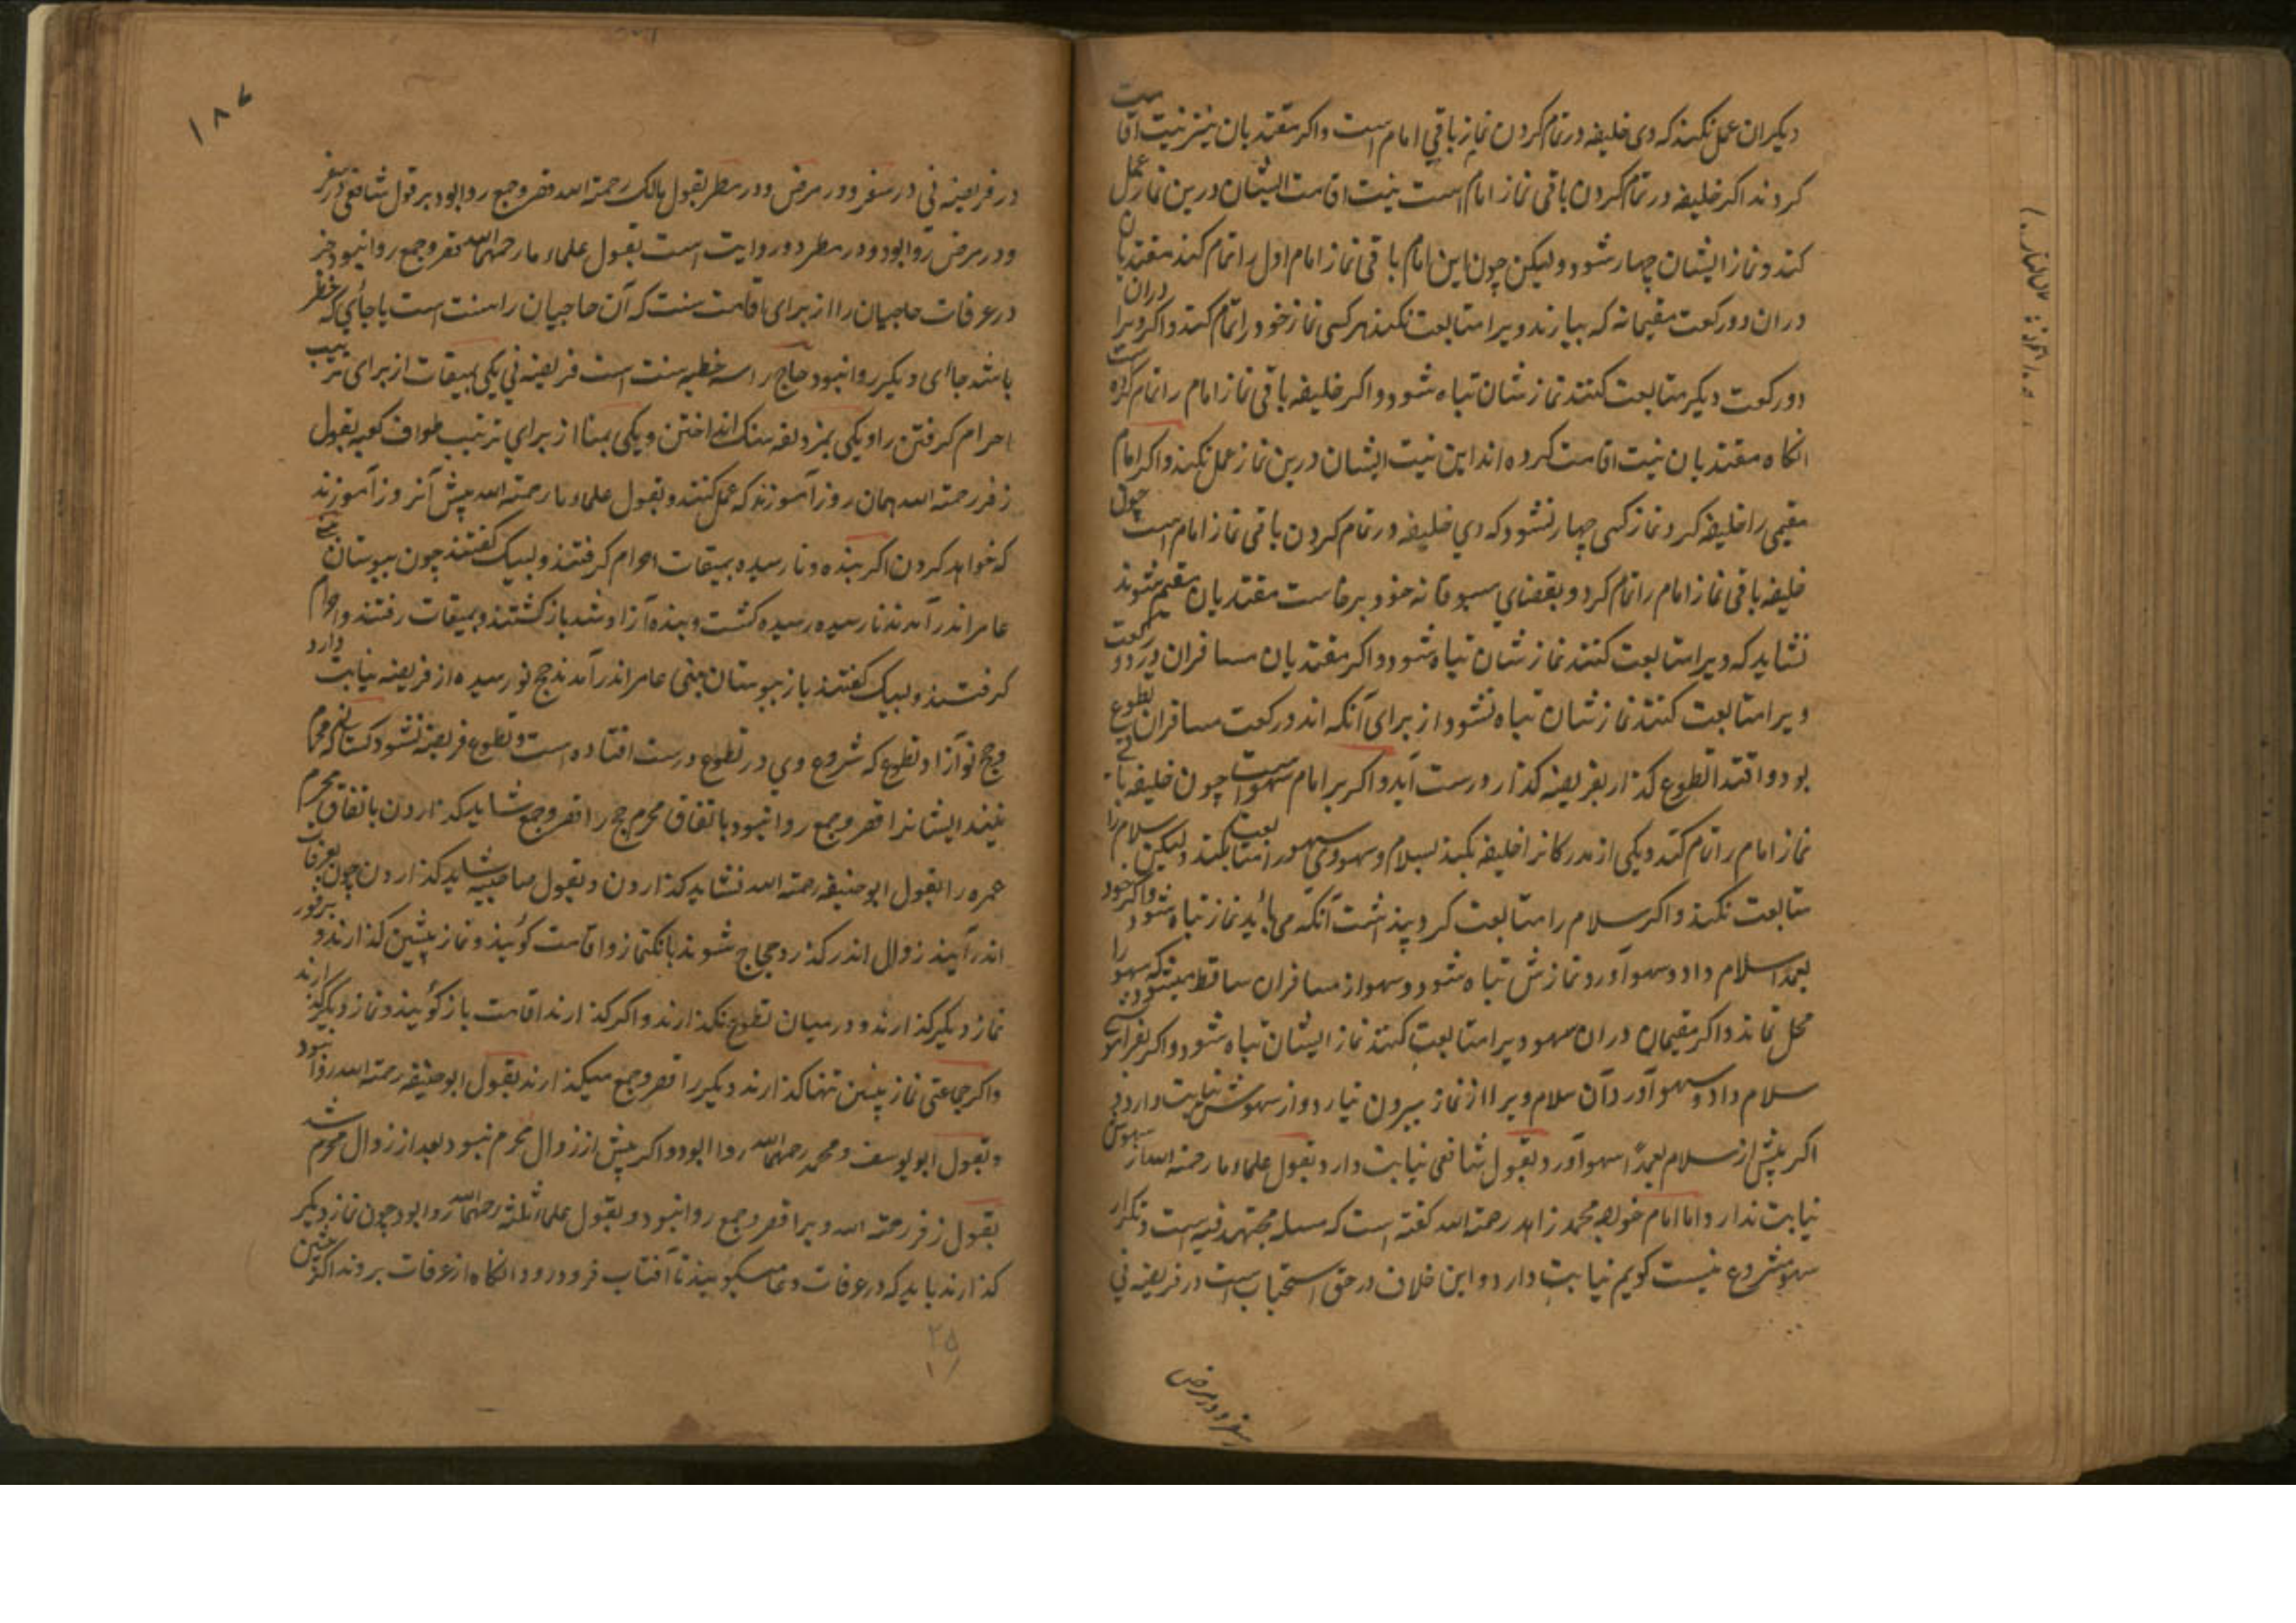 دیکران عمل نکنند که وی خلیفه در تمام کردن نماز باقی امام است واکر مقتدیان نیز نیت اقامت
کردند اکر خلیفه در تمام کردن باقی نماز امام است نیت اقامت ایشان درین نماز عمل
کند و نماز ایشان چهار شود و لیکن چون این امام باقی نماز امام اول را تمام کند مقتدیان
دران دو رکعت مقیمانه که بیارند ویرا متابعت نکنند هر کسی نماز خود را تمام کند واکر ویرا دران
دو رکعت دیکر متابعت کنند نماز شان تباه شود و اکر خلیفه باقی نماز امام را تمام کرده است
انکاه مقتدیان نیت اقامت کرده اند این نیت ایشان درین نماز عمل نکند واکر امام
مقیمی را خلیفه کرد نماز کسی چهار نشود که وي خلیفه در تمام کردن باقی نماز امام است چون
خلیفه باقی نماز امام را تمام کرد و بقضاي مسبوقانه خود برخاست مقتدیان مقیم نشوند
نشاید که ویرا متابعت کنند نماز شان تباه شود و اکر مقتدیان مسافران در دو رکعت
ویرا متابعت کنند نماز شان تباه نشود از برای آنکه اند و رکعت مسافران تطوع
بود و اقتدا تطوع کذار بفریضه کذار درست آید و اکر بر امام سهو است چون خلیفه باقی
نماز امام را تمام کند و یکی از مدرکانرا خلیفه نکند لسلام وسهو وی سهو را متابعت نکند ولیکن سلام را
متابعت نکند و اکر سلام را متابعت کرد پنداشت آنکه می باید نماز تباه شود واکر خود
بعمدا سلام داد وسهو آورد نمازش تباه شود و سهو از مسافران ساقط میشود که سهو را
محل نماند و اکر مقیمان دران سهو ویرا متابعت کنند نماز ایشان تباه شود و اکر بفراموشی
سلام داد وسهو آورد آن سلام ویرا از نماز بیرون نیارد و از سهوش نیابت دارد و
اکر پیش از سلام بعمدًا سهو آورد بقول شافعی نیابت دارد بقول علماء ما رحمته الله از سهوش
نیابت ندارد اما امام خواهر محمد زاهد رحمته الله کفته است که مسله مجتهد فیه است و تکرار
سهو مشروع نیست کویم نیابت دارد و این خلاف در حق استحباب است در فریضه نی
سفر و در مرض
۱۸۶
در فریضه نی در سفر و در مرض و در مطر بقول مالک رحمته الله قصر و جمع روا بود بر قول شافعی در سفر
و در مرض روا بود و در مطر دو روایت است بقول علماء ما رحمهم الله قصر و جمع روا نبود جز
در عرفات حاجیان را از برای اقامت سنت که آن حاجیان را سنت است یا جائی که خطر
باشد جاء دیکر روا نبود حاج را سه خطبه سنت است فریضه نی یکی بمیقات از برای ترتیب
احرام کرفتن را و یکی بمزدلفه سنک انداختن و یکی بمنا از براي ترتیب طواف کعبه بقول
زفر رحمته الله همان روز آموزند که عمل کنند و بقول علماء ما رحمته الله پیش آنروز آموزند
که خواهد کردن اکر بنده و نارسیده بمیقات احرام کرفتند و لبیک کفتند چون ببوستان بنی
عامر اندر آمدند نارسیده رسیده کشت و بنده آزاد شد باز کشتند و بمیقات رفتند و احرام
کرفتند و لبیک کفتند باز ببوستان بنی عامر اندر آمدند حج نو رسیده از فریضه نیابت دارد
و حج نو آزاد تطوع که شروع وي در تطوع درست افتاده است و تطوع فریضه نشود کسانیکه محرم
نیند ایشانرا قصر و جمع روا نبود باتفاق محرم حج را قصر و جمع شاید کذاردن باتفاق محرم
عمره را بقول ابو حنیفه رحمته الله نشاید کذاردن و بقول صاحبیه شاید کذاردن چون بعرفات
اندر آیند زوال اندر کذرد حجاج شوند بانک نماز و اقامت کویند و نماز پیشین کذارند و بر فور
نماز دیکر کذارند و در میان تطوع نکذارند و اکر کذارند اقامت باز کویند و نماز دیکر کذارند
و اکر جماعتی نماز پیشین تنها کذارند دیکر را قصر و جمع میکذارند بقول ابو حنیفه رحمته الله روا نبود
و بقول ابو یوسف و محمد رحمهما الله روا ابود و اکر پیش از زوال محرم نبود بعد از زوال محرم شد
بقول زفر رحمته الله ویرا قصر و جمع روا نبود و بقول علماء ثلثه رحمهم الله روا بود چون نماز دیکر
کذارند باید که در عرفات دعا میکویند تا آفتاب فرو رود و انکاه از عرفات بروند اکر پیشین
۲۵
۱